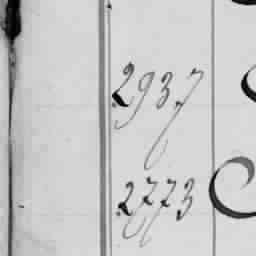 2937
2773